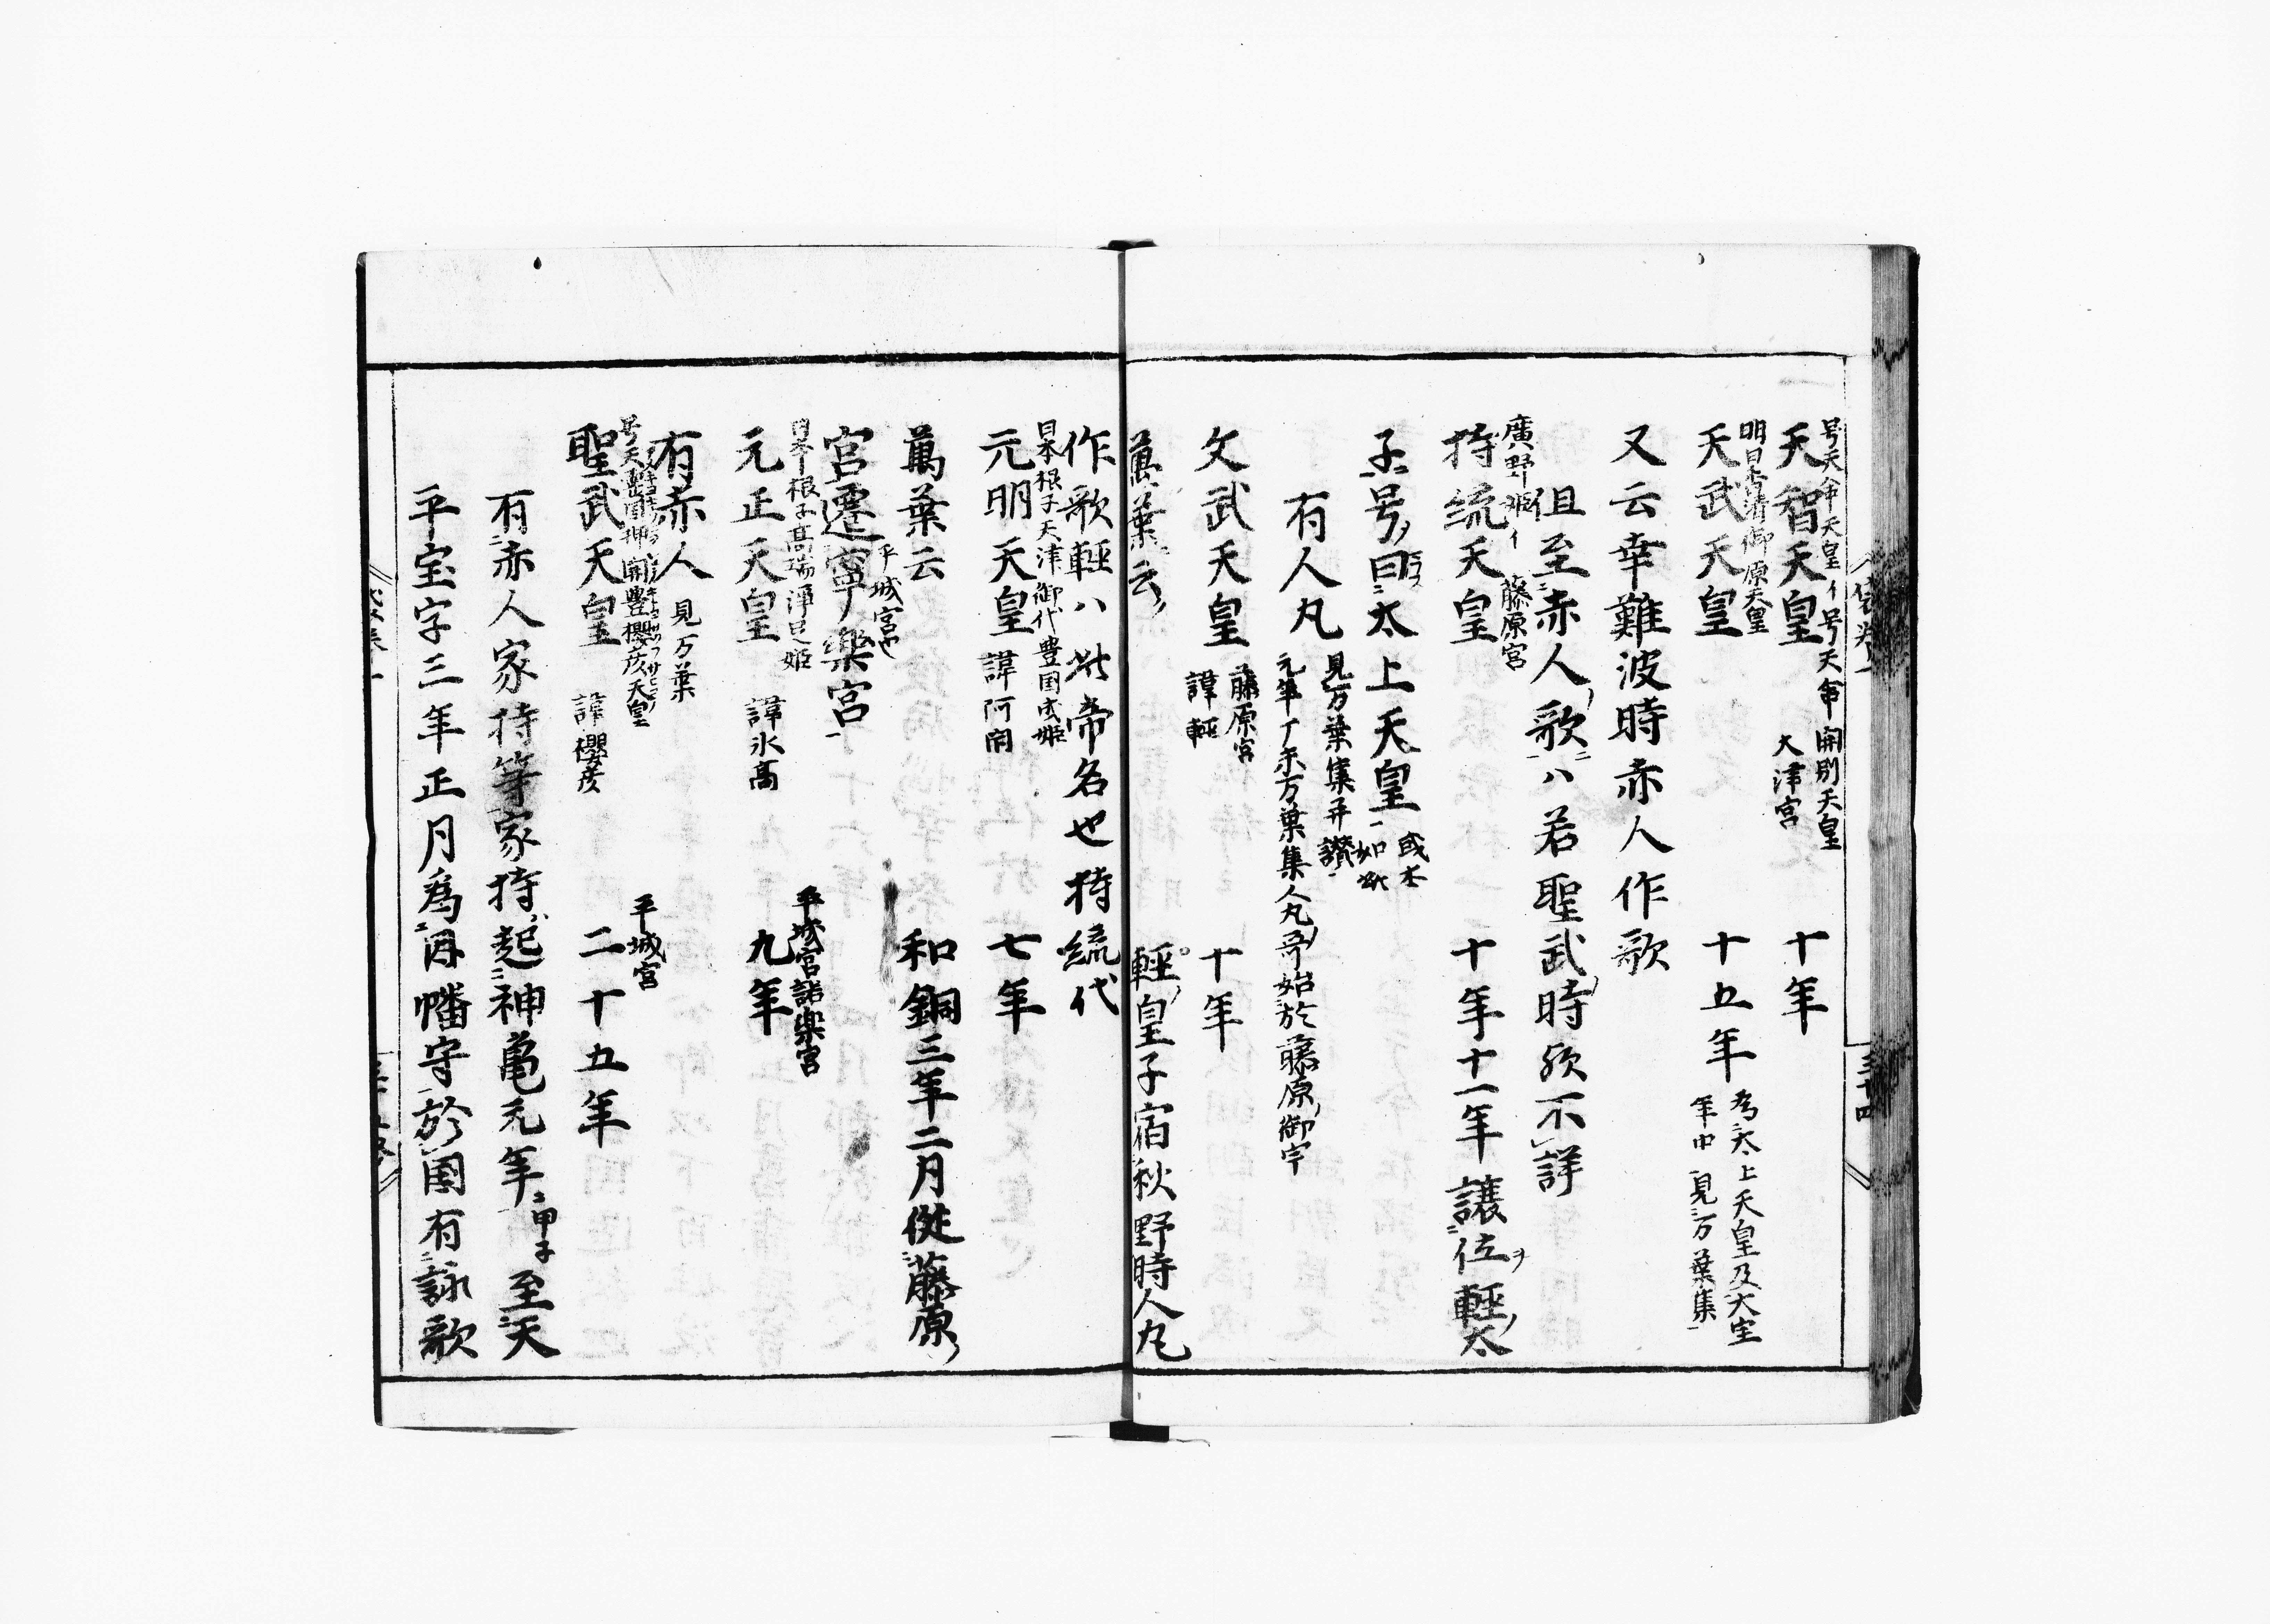 号天命天皇イ号天命開別天皇
天智天皇
大津宮
十年
明日香清御原天皇
天武天皇
十五年
為太上天皇及大宝
年中見万葉集
又云幸難波時赤人作歌
但至赤人ノ歌ニハ若聖武ノ時歟不詳
廣野姫イ
藤原宮
持統天皇
十年十一年譲位ヲ軽ノ太
子号ノ曰太上天皇
或本
如此
有人丸
見万葉集并讃
元年丁亥万葉集人丸ノ哥始於藤原ノ御宇
文武天皇
藤原宮
諱軽
十年
萬葉云
軽ノ皇子宿秋野時人丸
作歌軽ハ此帝名也持統代
日本根子天津御代豊国成姫
元明天皇
諱阿閇
七年
萬葉云
和銅三年二月従藤原ノ
宮遷寧ノ樂宮
平城宮也
日本根子高瑞浄足姫
元正天皇
諱氷高
平城宮諾楽宮
九年
有赤人
見万葉
号天璽国押開豊櫻彦天皇
聖武天皇
諱櫻彦
平城宮
二十五年
有赤人家持等家持起神亀元年
甲子
至天
平宝字三年正月為因幡守於国有詠歌